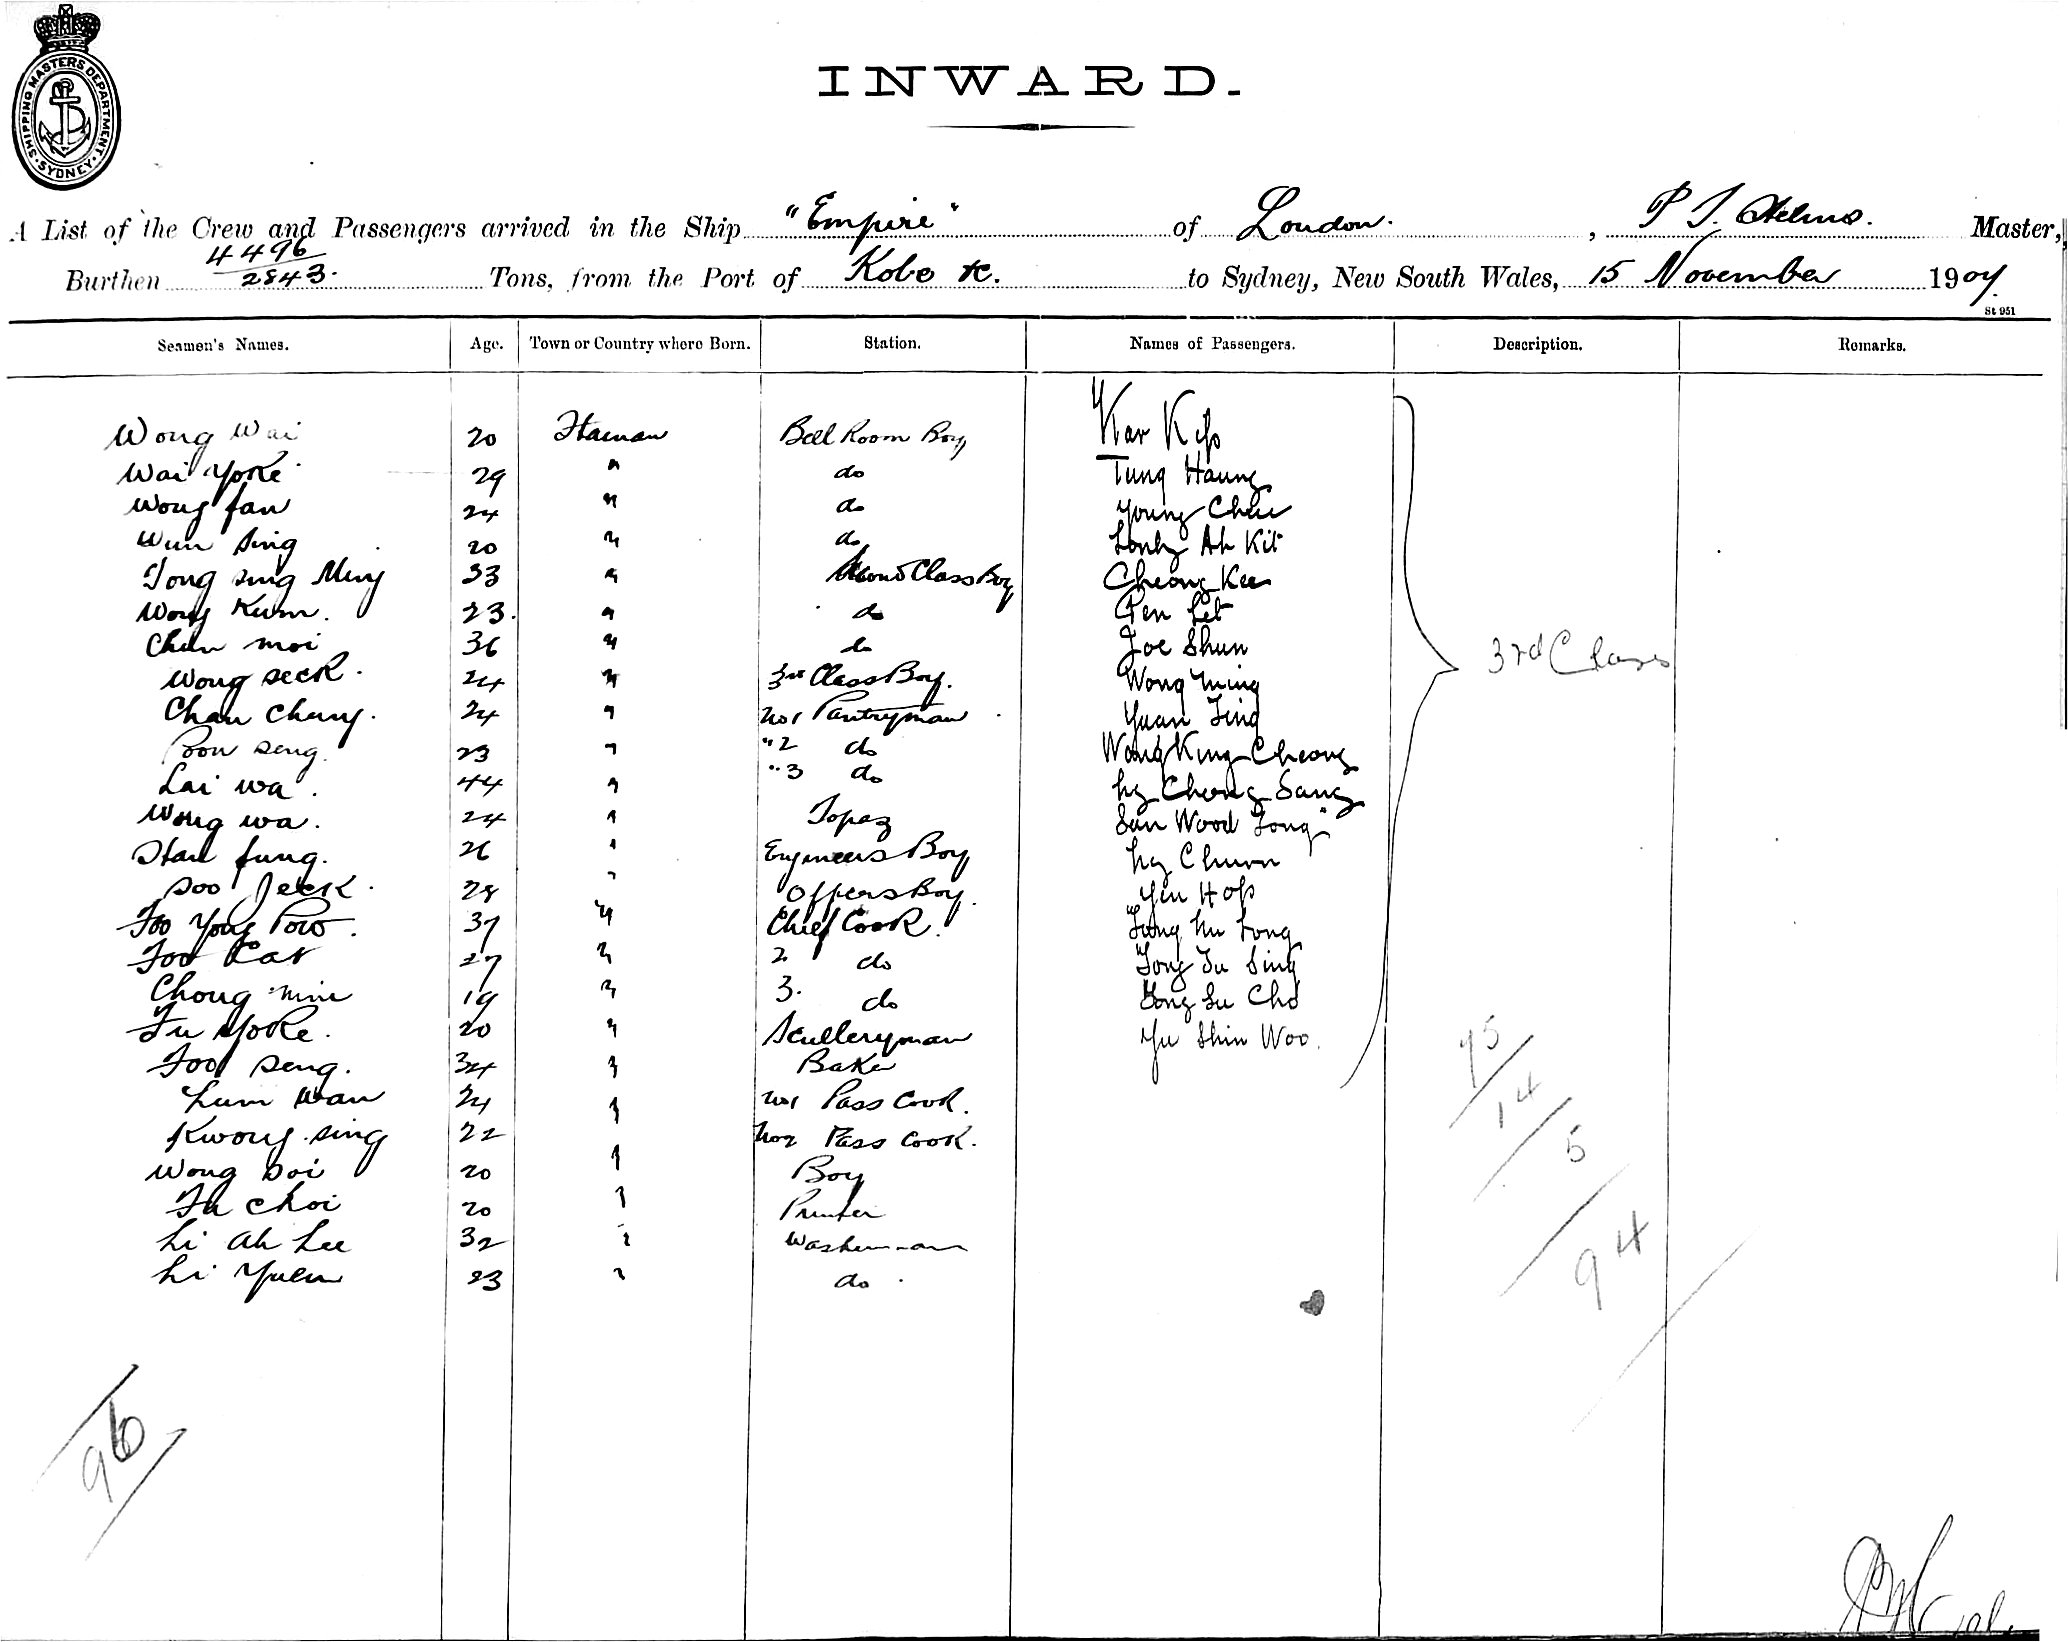 SHIPPING MASTERS DEPARTMENT · SYDNEY ·
INWARD.
A List of the Crew and Passengers arrived in the Ship "Empire" of London. , P T. Helms. Master,
Burthen 4496
2843. Tons, from the Port of Kobe &c. to Sydney, New South Wales, 15 November 1907.
St 951
Seamen's Names. Age. Town or Country where Born. Station. Names of Passengers. Description. Remarks.
Wong Wai 20 Hainan Bed Room Boy Kar Kip
Wai Yoke 29 " do Tung Haung
Wong fan 24 " do Young Chee
Wun Sing 20 " do Ah Kit
Tong Sing Ming 33 " Second Class Boy Cheong Kee
Wong Kum. 23. " do Pen Let
Chun moi 36 " do Joe Shun
Wong Seck. 24 " 3rd Class Boy. Wong Ming
3rd Class
Chan Chung. 24 " No 1 Pantryman Yuan Ting
Poon Seng. 23 " " 2 do Wong King Cheong
Lai wa. 44 " " 3 do Ng Chong Sang
Wong wa. 24 " Topaz Sun Wood Tong
Han fung. 26 " Engineers Boy Ng Chunn
Soo Jeck. 28 " Officers Boy. Yin Hop
Foo Yong Pow. 37 " Chief Cook. Long
Foo Cat 27 " 2 do Tong Tu Sing
Chong min 19 " 3. do Tong Su Cho
Fu Yoke. 20 " Sculleryman Yu Shin Woo.
Foo Seng. 34 " Baker
Lum Wan 24 " No 1 Pass Cook.
Kwong Sing 22 " No 2 Pass Cook.
Wong Soi 20 " Boy
Fu Choi 20 " Printer
Li Ah Lee 32 " Washerman
Li Yuen 23 " do
75
14
5
94
96